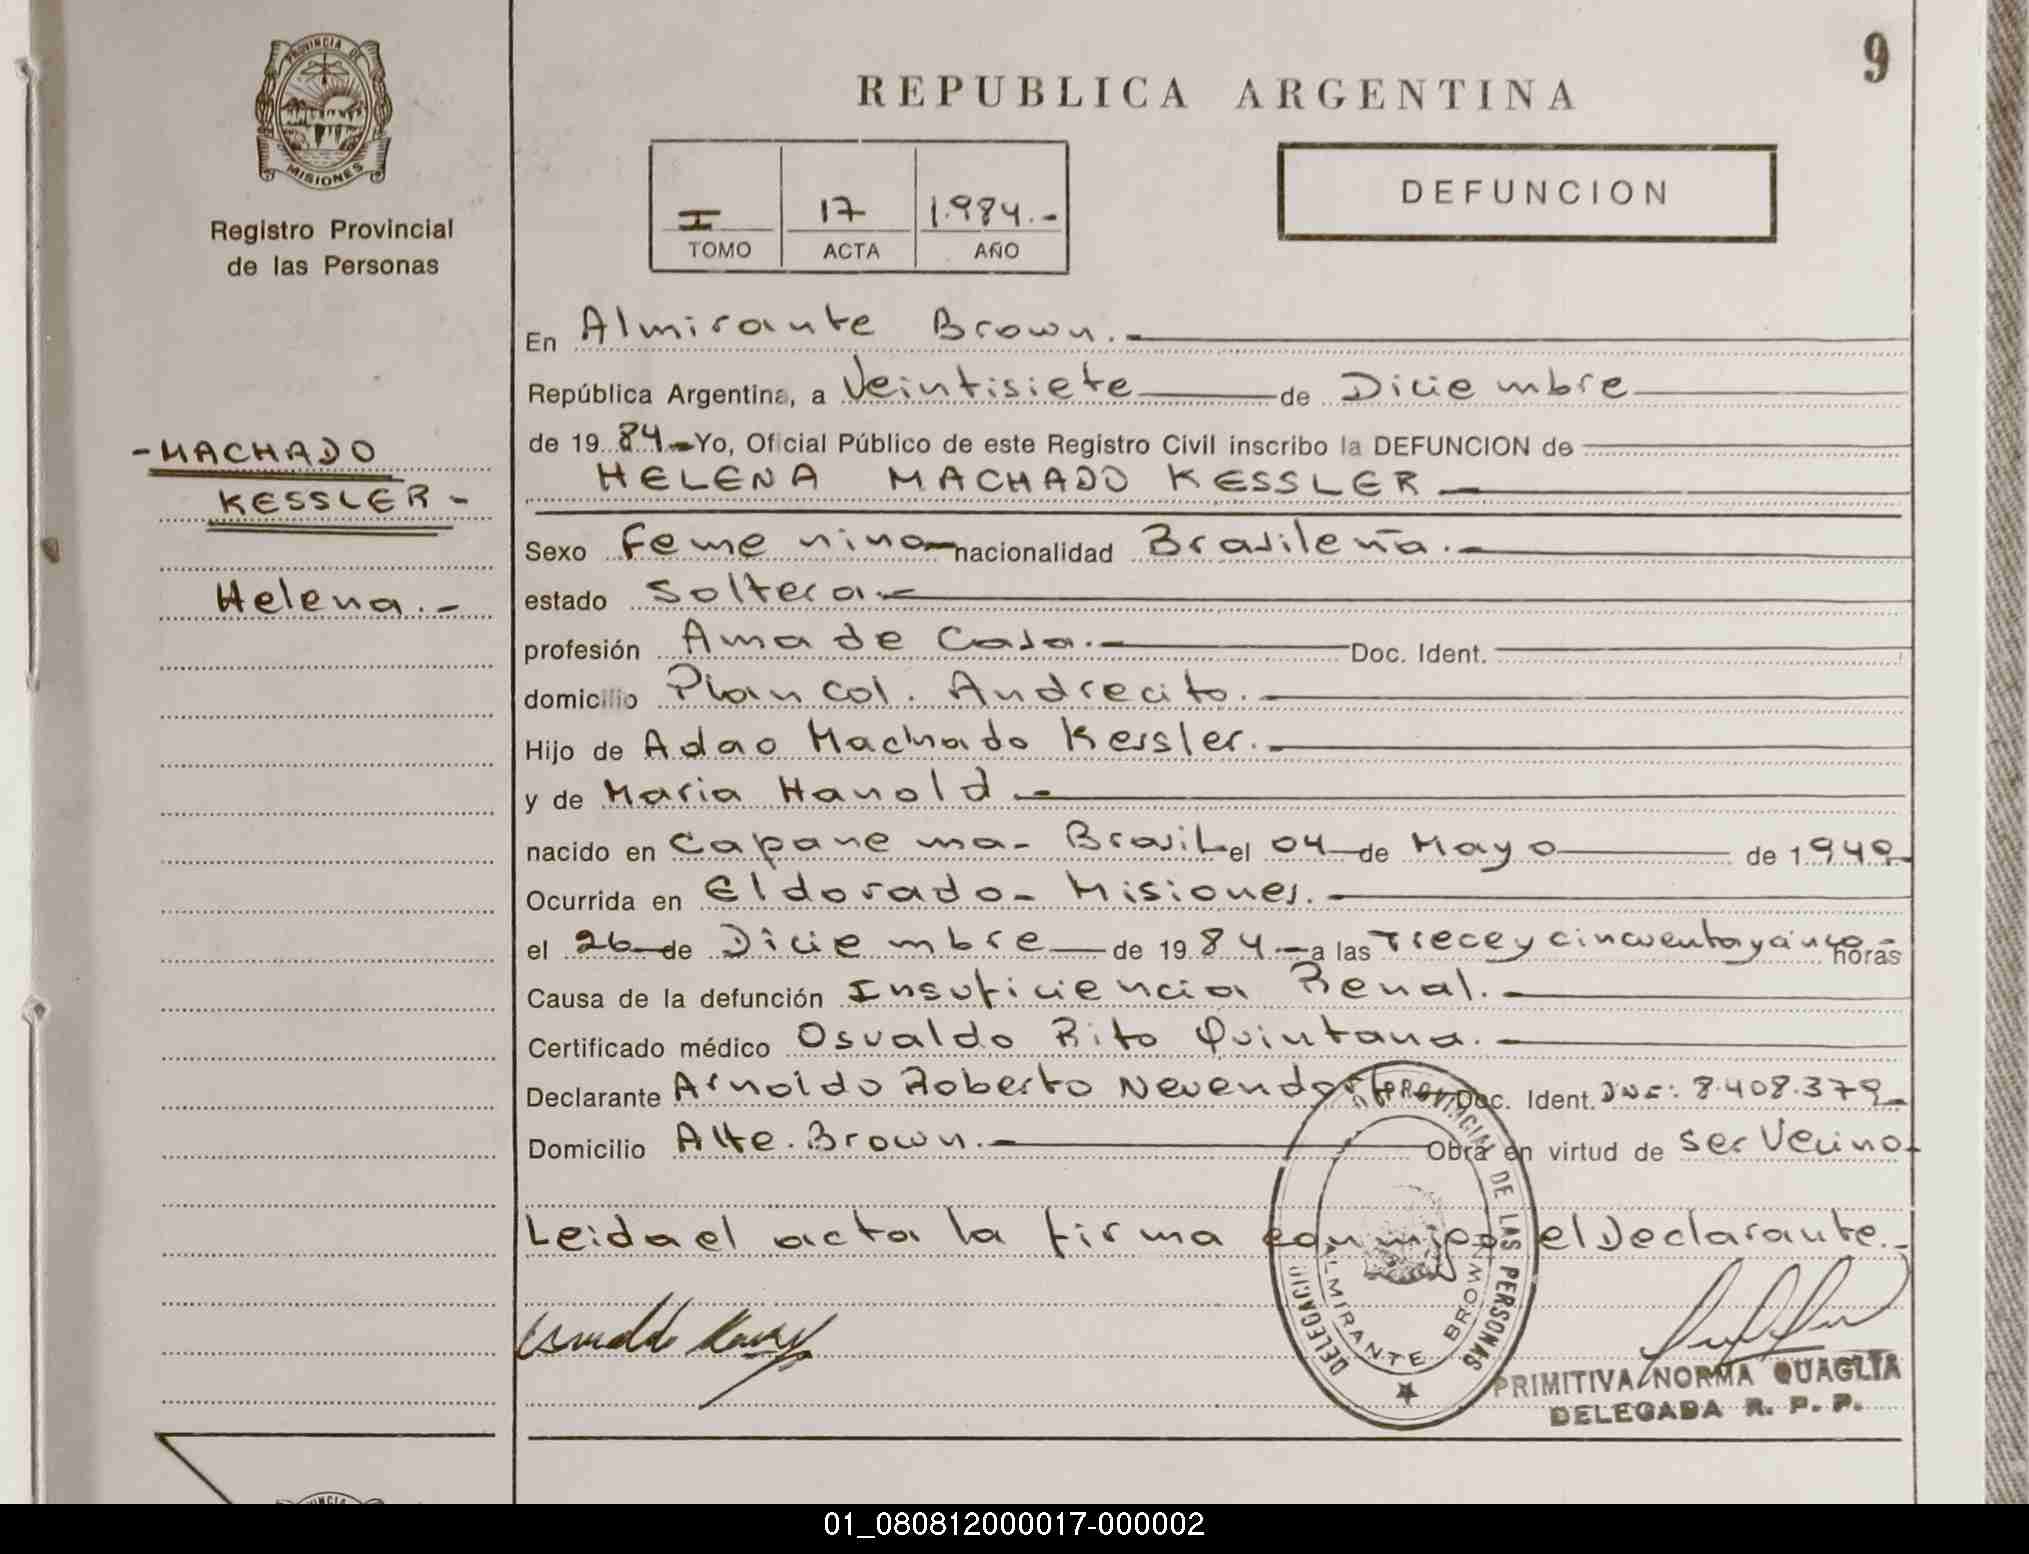 9
PROVINCIA DE
MISIONES
Registro Provincial
de las Personas
REPUBLICA ARGENTINA
I 17 1.984.-
TOMO ACTA AÑO
DEFUNCION
-MACHADO
KESSLER-
Helena.-
En Almirante Brown.-
República Argentina, a Veintisiete de Diciembre
de 1984.- Yo, Oficial Público de este Registro Civil inscribo la DEFUNCION de
HELENA MACHADO KESSLER
Sexo Femenino nacionalidad Brasileña.-
estado Soltera.-
profesión Ama de Casa.- Doc. Ident.
domicilio Plan Col. Andrecito.-
Hijo de Adao Machado Kessler.-
y de Maria Hanold.-
nacido en Capanema- Brasil el 04 de Mayo de 1949
Ocurrida en Eldorado- Misiones.-
el 26 de Diciembre de 1984.- a las Trece y cincuenta y cinco horas
Causa de la defunción Insuficiencia Renal.-
Certificado médico Osvaldo Rito Quintana.-
Declarante Arnoldo Roberto Doc. Ident. 8.408.379-
Domicilio Alte. Brown.- Obra en virtud de Ser Vecino-
Leida el acta la firma conmigo el Declarante.-
PROVINCIAL DE LAS PERSONAS
DELEGACIO
ALMIRANTE BROWN
PRIMITIVA NORMA QUAGLIA
DELEGADA R. P. P.
01_080812000017-000002